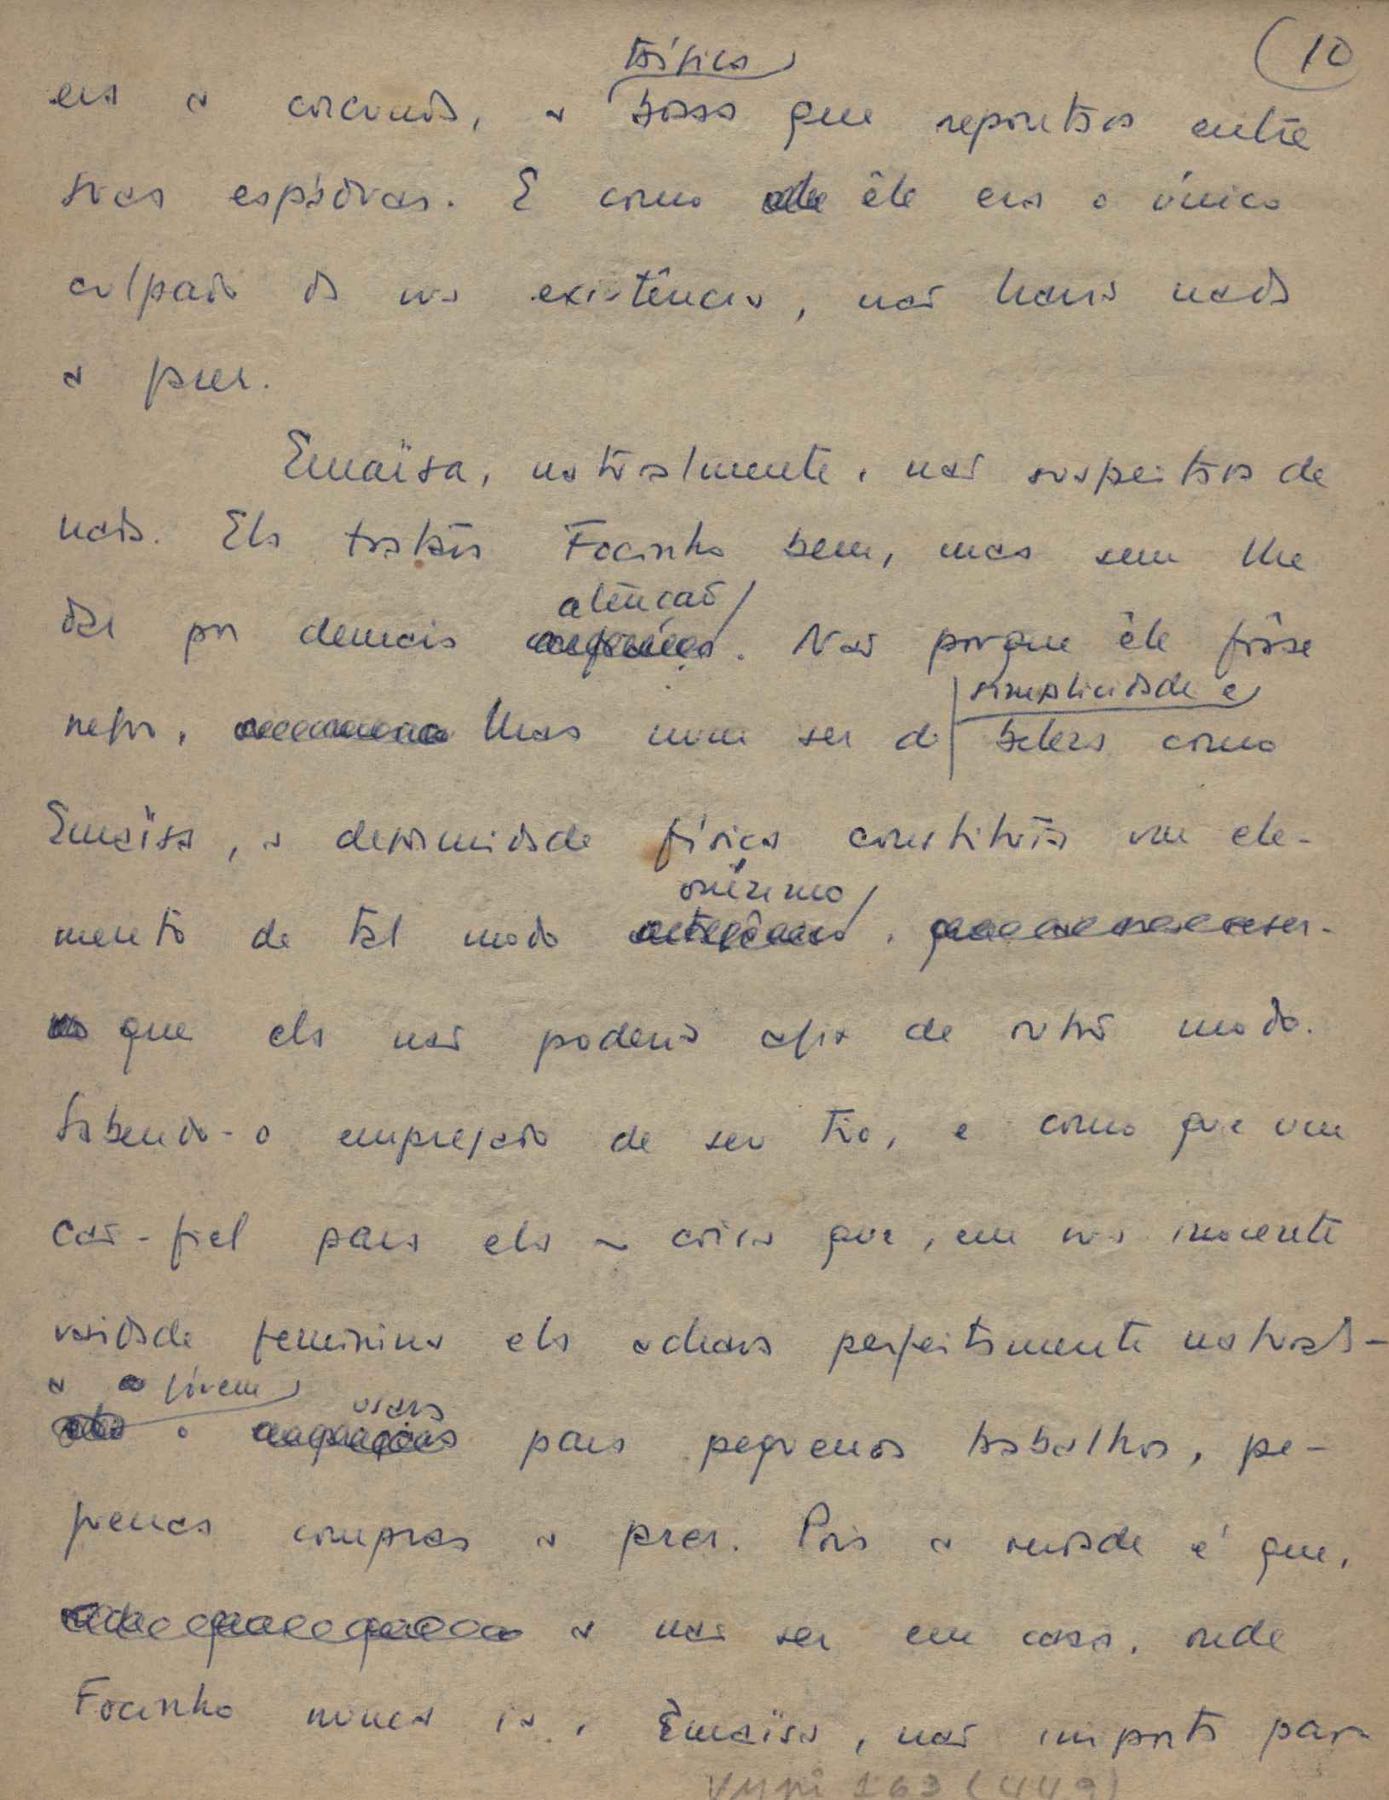 10
trágica
era a corcunda, a bossa que repontava entre
suas espáduas. E como êle era o único
culpado da sua existência, não havia nada
a fazer.
Emaïsa, naturalmente, não suspeitava de
nada. Ela tratava Focinho bem, mas sem lhe
atenção
dar por demais. Não porque êle fôsse
simplicidade e
negro. Mas num ser da beleza como
Emaïsa, a deformidade física constituía um ele-
mínimo
mento de tal modo,
que ela não poderia agir de outro modo.
Sabendo-o empregado de seu tio, e como que um
cão-fiel para ela – coisa que, em sua inocente
vaidade feminina ela achava perfeitamente natural –
a jovem
usava
o para pequenos trabalhos, pe-
quenas compras a fazer. Pois a verdade é que,
a não ser em casa, onde
Focinho nunca ia, Emaïsa, não importa para
VMpi 163 (449)